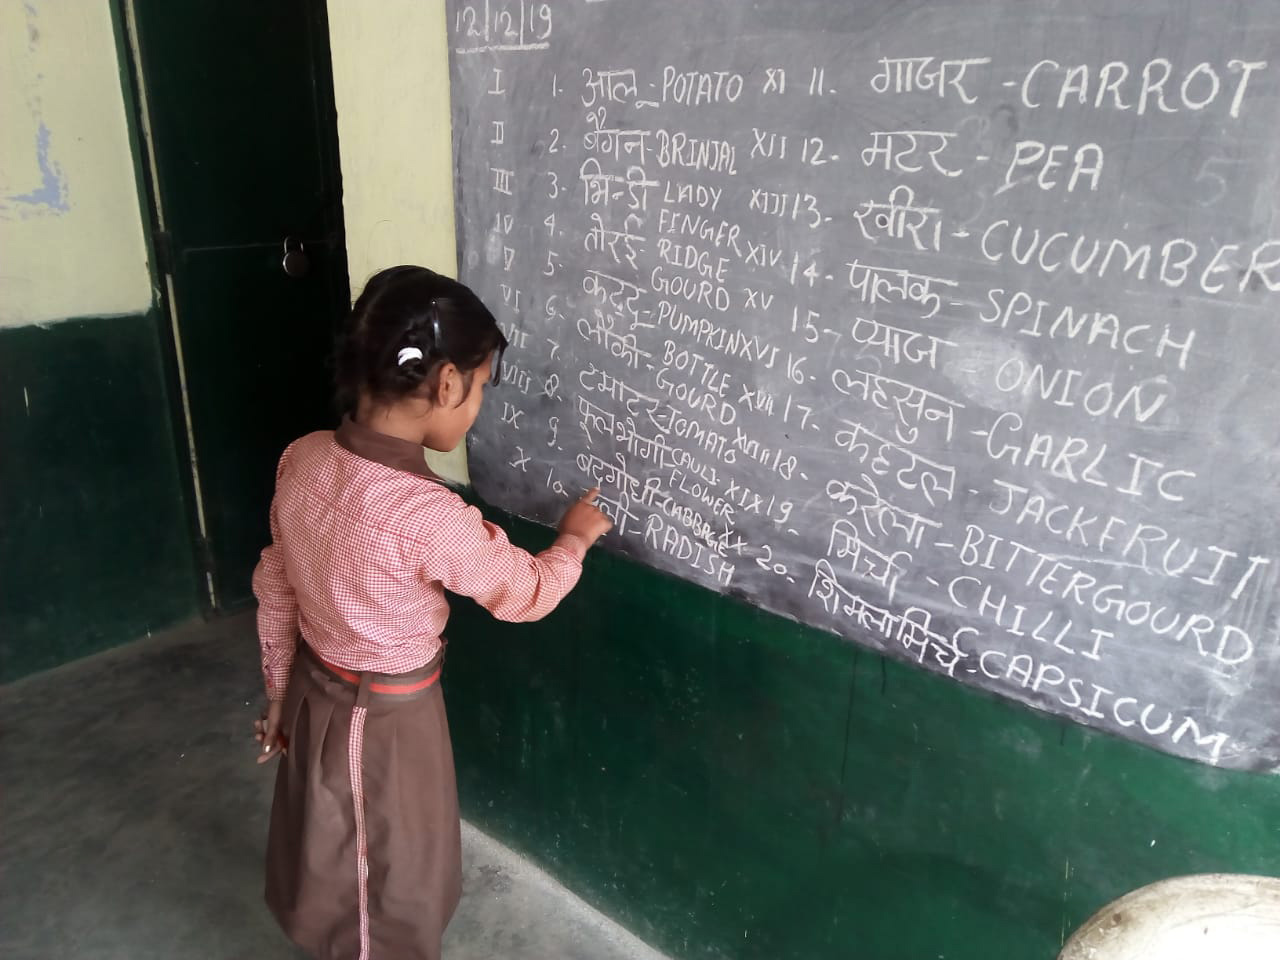 12|12|19
I 1. आलू - POTATO
II 2. बैंगन - BRINJAL
III 3. भिन्डी LADY FINGER
IV 4. तोरई - RIDGE GOURD
V 5. कद्दू - PUMPKIN
VI 6. लौकी - BOTTLE GOURD
VII 7. टमाटर - TOMATO
VIII 8. फूलगोभी - CAULI FLOWER
IX 9. बंदगोभी - CABBAGE
X 10. - RADISH
XI 11. गाजर - CARROT
XII 12. मटर - PEA
XIII 13. खीरा - CUCUMBER
XIV 14. पालक - SPINACH
XV 15. प्याज - ONION
XVI 16. लहसुन - GARLIC
XVII 17. कटहल - JACKFRUIT
XVIII 18. करेला - BITTERGOURD
XIX 19. मिर्चा - CHILLI
XX 20. शिमला मिर्च - CAPSICUM